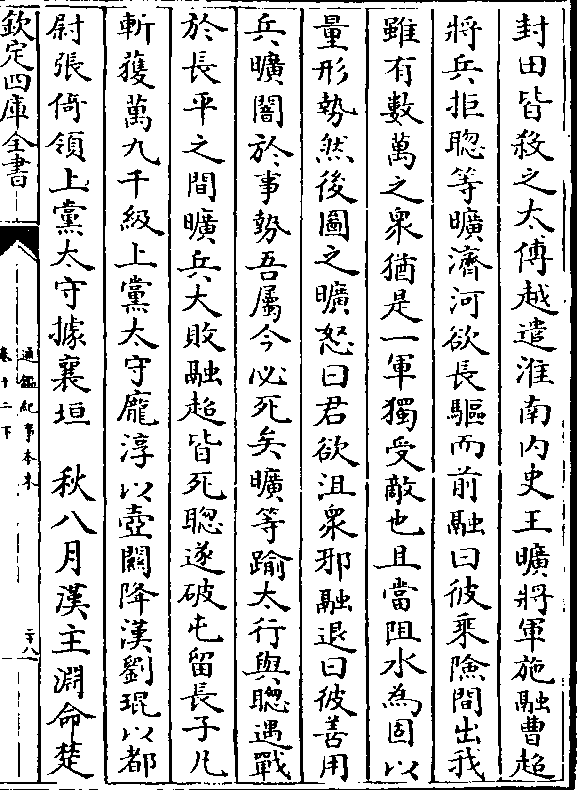 封田皆殺之太傅越遣淮南内史王曠將軍施融曹超
將兵拒聰等曠濟河欲長驅而前融曰彼乘險間出我
雖有數萬之衆猶是一軍獨受敵也且當阻水為固以
量形勢然後圖之曠怒曰君欲沮衆邪融退曰彼善用
兵曠闇於事勢吾屬今必死矣曠等踰太行與聰遇戰
於長平之間曠兵大敗融超皆死聰遂破屯留長子凡
斬獲萬九千級上黨太守龎淳以壺關降漢劉琨以都
尉張倚領上黨太守據襄垣　秋八月漢主淵命楚
欽定四庫全書
通鑑紀事本末
卷十二下
二十八